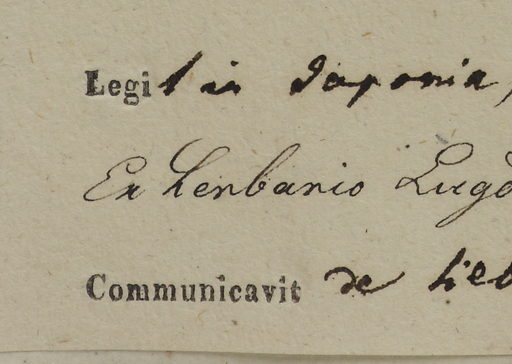 Legit in Japonia,
Ex herbario Lugd
Communicavit de Sieb